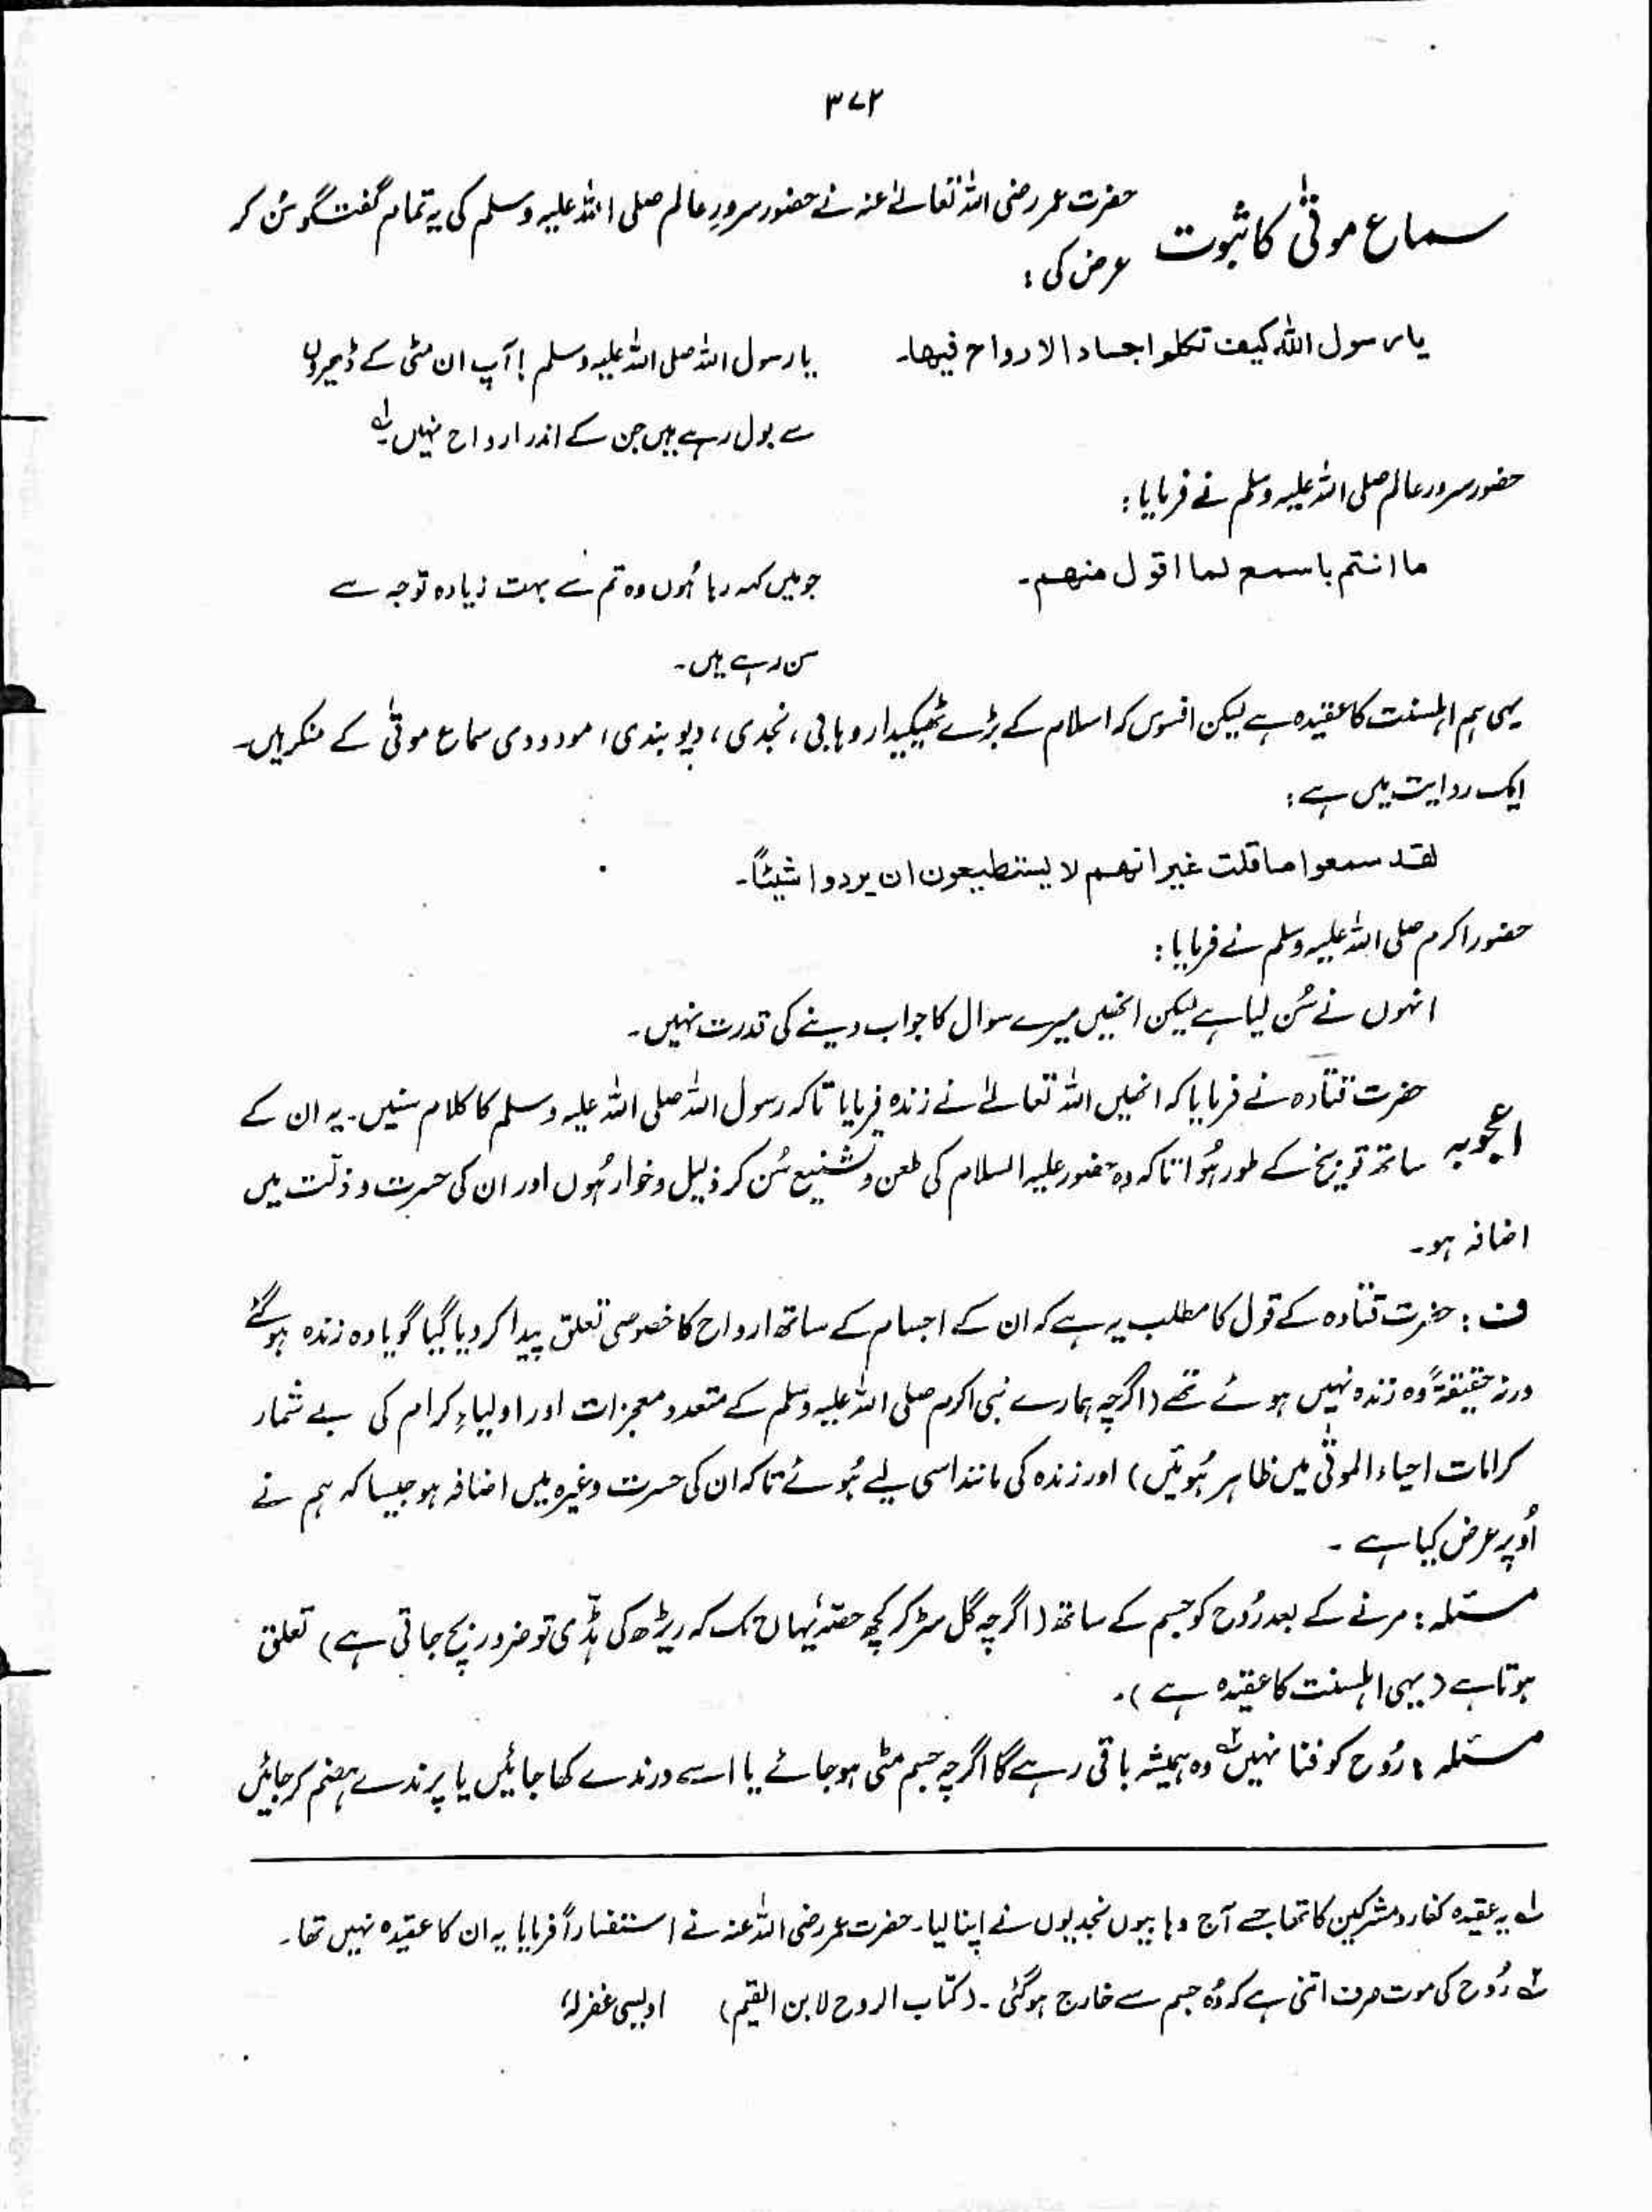 ۳۷۲
سماع موتیٰ کا ثبوت حضرت عمر رضی اللہ تعالےٰ عنہ نے حضور سرورِ عالم صلی اللہ علیہ وسلم کی یہ تمام گفتگو سُن کر
عرض کی :
یا رسول اللہ کیف تکلو اجساد الارواح فیھا۔ یا رسول اللہ صلی اللہ علیہ وسلم ! آپ ان مٹی کے ڈھیروں
سے بول رہے ہیں جن کے اندر ارواح نہیں لہ
حضور سرور عالم صلی اللہ علیہ وسلم نے فرمایا :
ما انتم باسمع لما اقول منھم۔ جو میں کہہ رہا ہُوں وہ تم سے بہت زیادہ توجہ سے
سن رہے ہیں۔
یہی ہم اہلسنت کا عقیدہ ہے لیکن افسوس کہ اسلام کے بڑے ٹھیکیدار وہابی ، نجدی ، دیوبندی ، مودودی سماع موتیٰ کے منکر ہیں۔
ایک روایت میں ہے :
لقد سمعوا ما قلت غیر انھم لا یستطیعون ان یردوا شیئاً۔
حضور اکرم صلی اللہ علیہ وسلم نے فرمایا :
انہوں نے سُن لیا ہے لیکن انھیں میرے سوال کا جواب دینے کی قدرت نہیں۔
اعجوبہ حضرت قتادہ نے فرمایا کہ انھیں اللہ تعالےٰ نے زندہ فرمایا تاکہ رسول اللہ صلی اللہ علیہ وسلم کا کلام سنیں۔ یہ ان کے
ساتھ توبیخ کے طور ہُوا تاکہ وہ حضور علیہ السلام کی طعن و تشنیع سُن کر ذلیل و خوار ہُوں اور ان کی حسرت و ذلّت میں
اضافہ ہو۔
ف : حضرت قتادہ کے قول کا مطلب یہ ہے کہ ان کے اجسام کے ساتھ ارواح کا خصوصی تعلق پیدا کر دیا گیا گویا وہ زندہ ہو گئے
ورنہ حقیقۃً وہ زندہ نہیں ہوئے تھے (اگرچہ ہمارے نبی اکرم صلی اللہ علیہ وسلم کے متعدد معجزات اور اولیاءِ کرام کی بے شمار
کرامات احیاء الموتیٰ میں ظاہر ہُوئیں) اور زندہ کی مانند اسی لیے ہُوئے تاکہ ان کی حسرت وغیرہ میں اضافہ ہو جیسا کہ ہم نے
اُوپر عرض کیا ہے ۔
مسئلہ : مرنے کے بعد رُوح کو جسم کے ساتھ (اگرچہ گل سڑ کر کچھ حصہ یہاں تک کہ ریڑھ کی ہڈّی تو ضرور بچ جاتی ہے) تعلق
ہوتا ہے (یہی اہلسنت کا عقیدہ ہے)۔
مسئلہ : رُوح کو فنا نہیں ۲ہ وہ ہمیشہ باقی رہے گا اگرچہ جسم مٹی ہو جائے یا اسے درندے کھا جائیں یا پرندے ہضم کر جائیں
لہ یہ عقیدہ کفار و مشرکین کا تھا جسے آج وہابیوں نجدیوں نے اپنا لیا۔ حضرت عمر رضی اللہ عنہ نے استفساراً فرمایا یہ ان کا عقیدہ نہیں تھا۔
۲ہ رُوح کی موت صرف اتنی ہے کہ وُہ جسم سے خارج ہو گئی ۔ (کتاب الروح لابن القیم) اویسی غفرلہٗ